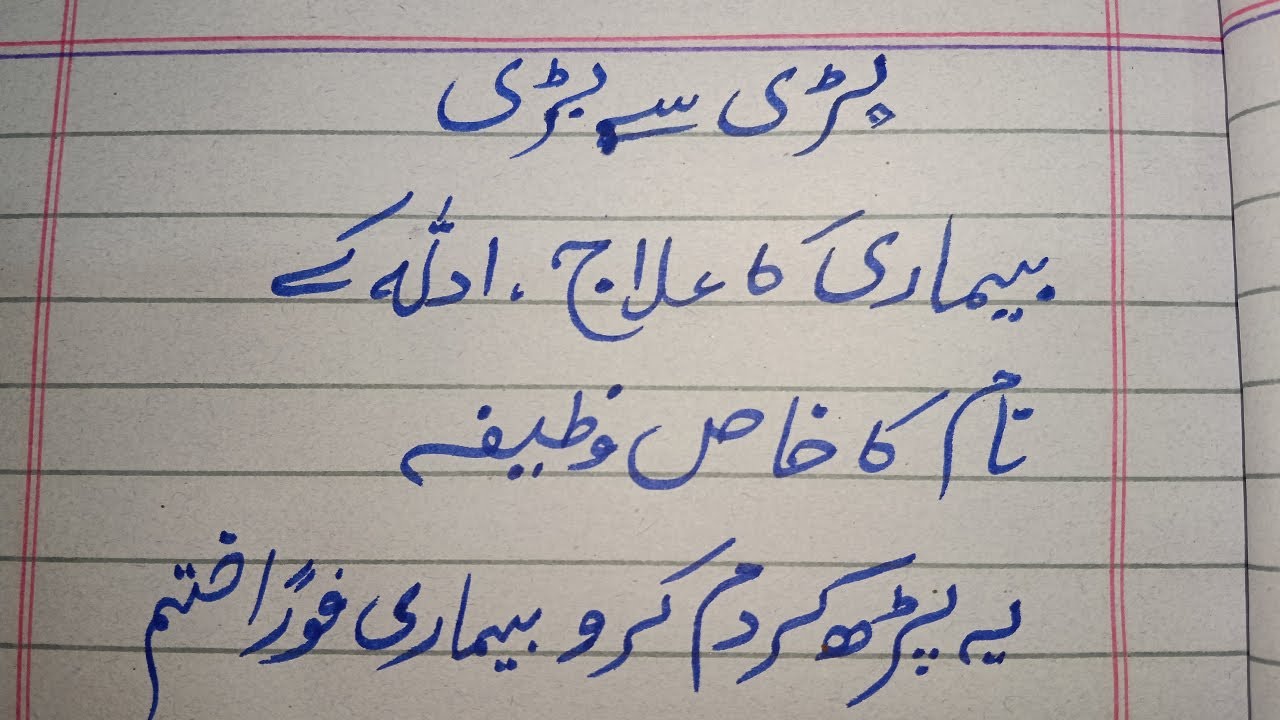 بڑی سے بڑی
بیماری کا علاج ، اللّٰہ کے
نام کا خاص وظیفہ
یہ پڑھ کر دم کرو بیماری فوراً ختم